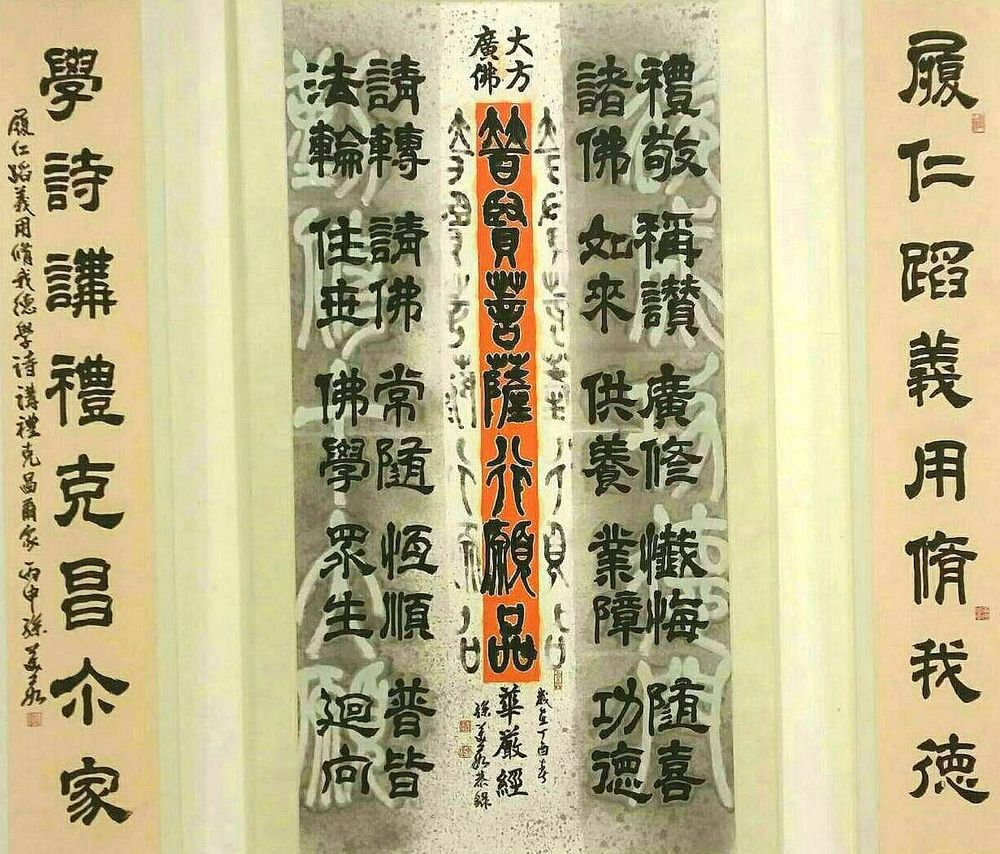 履仁蹈義用脩我德
禮敬
諸佛
稱讚
如來
廣修
供養
懺悔
業障
隨喜
功德
大方
廣佛
華嚴經
普賢菩薩行願品
歲在丁酉春
孫美蓉恭錄
請轉
法輪
請佛
住世
常隨
佛學
恆順
眾生
普皆
迴向
學詩講禮克昌尒家
履仁蹈義用脩我德學詩講禮克昌爾家 丙申 孫美蓉